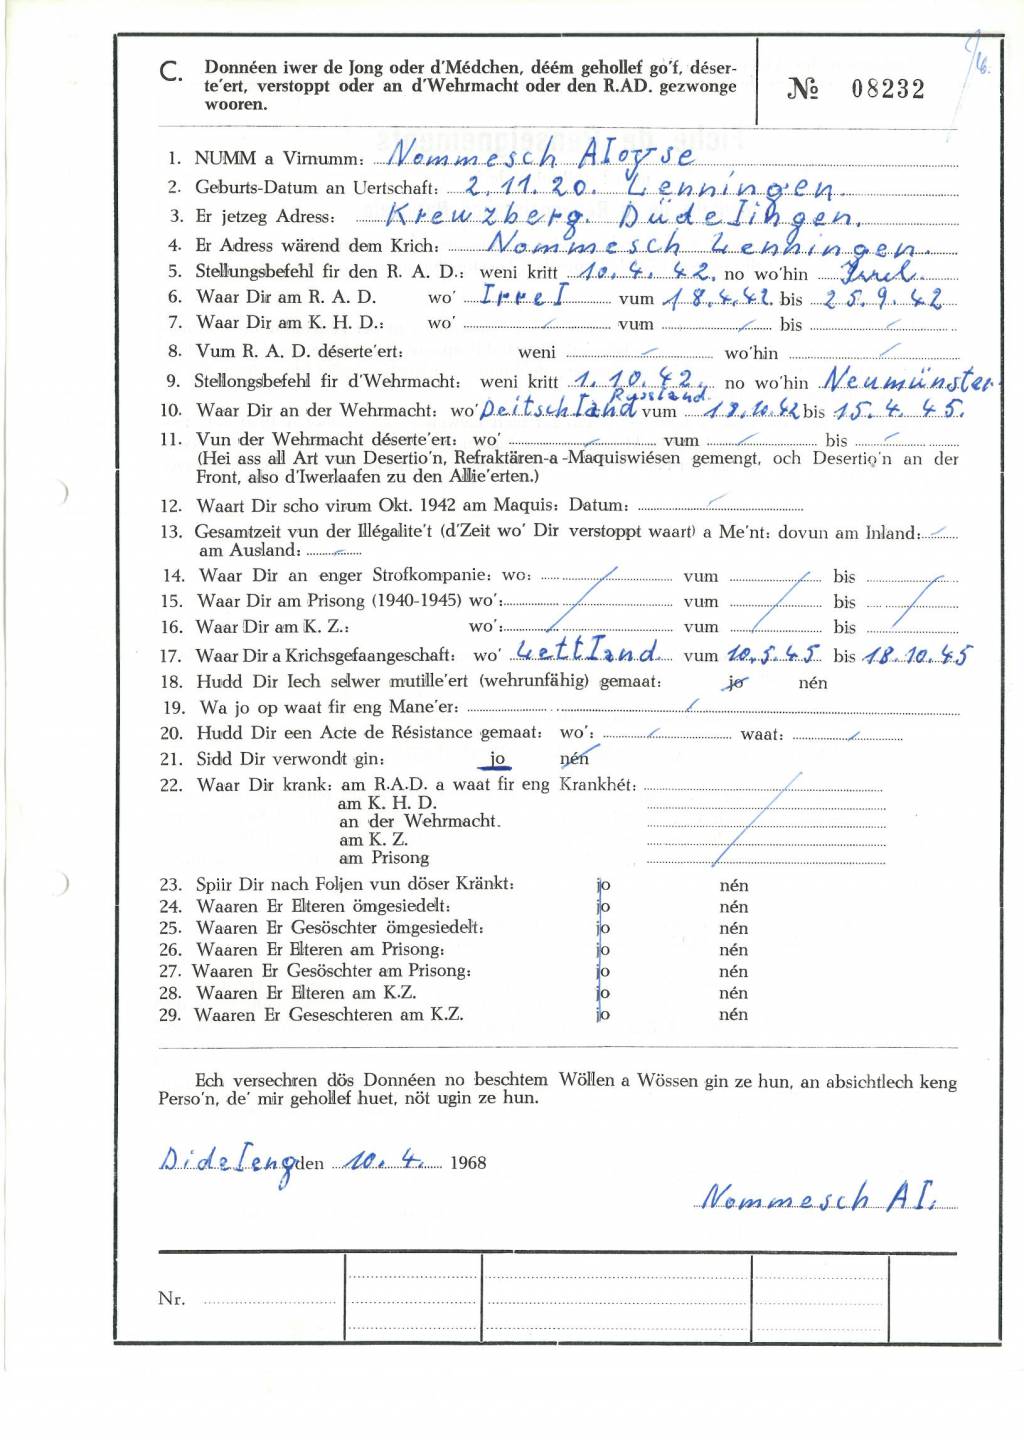 C. Donnéen iwer de Jong oder d'Médchen, déém gehollef go'f, déser-
te'ert, verstoppt oder an d'Wehrmacht oder den R.AD. gezwonge
wooren.
№ 08232
1. NUMM a Virnumm: Nommesch Aloyse
2. Geburts-Datum an Uertschaft: 2.11.20. Lenningen.
3. Er jetzeg Adress: Kreuzberg. Düdelingen.
4. Er Adress wärend dem Krich: Nommesch Lenningen.
5. Stellungsbefehl fir den R. A. D.: weni kritt 10.4.42. no wo'hin Irrel
6. Waar Dir am R. A. D. wo' Irrel vum 18.4.42. bis 25.9.42
7. Waar Dir am K. H. D.: wo' vum bis
8. Vum R. A. D. déserte'ert: weni wo'hin
9. Stellongsbefehl fir d'Wehrmacht: weni kritt 1.10.42. no wo'hin Neumünster
Russland
10. Waar Dir an der Wehrmacht: wo' Deitschland vum 18.10.42 bis 15.4.45.
11. Vun der Wehrmacht déserte'ert: wo' vum bis
(Hei ass all Art vun Desertio'n, Refraktären-a-Maquiswiésen gemengt, och Desertio'n an der
Front, also d'Iwerlaafen zu den Allie'erten.)
12. Waart Dir scho virum Okt. 1942 am Maquis: Datum:
13. Gesamtzeit vun der Illégalite't (d'Zeit wo' Dir verstoppt waart) a Me'nt: dovun am Inland:
am Ausland:
14. Waar Dir an enger Strofkompanie: wo: vum bis
15. Waar Dir am Prisong (1940-1945) wo': vum bis
16. Waar Dir am K. Z.: wo': vum bis
17. Waar Dir a Krichsgefaangeschaft: wo' Lettland vum 10.5.45 bis 18.10.45
18. Hudd Dir Iech selwer mutille'ert (wehrunfähig) gemaat: jo nén
19. Wa jo op waat fir eng Mane'er:
20. Hudd Dir een Acte de Résistance gemaat: wo': waat:
21. Sidd Dir verwondt gin: jo nén
22. Waar Dir krank: am R.A.D. a waat fir eng Krankhét:
am K. H. D.
an der Wehrmacht.
am K. Z.
am Prisong
23. Spiir Dir nach Foljen vun döser Kränkt: jo nén
24. Waaren Er Elteren ömgesiedelt: jo nén
25. Waaren Er Gesöschter ömgesiedelt: jo nén
26. Waaren Er Elteren am Prisong: jo nén
27. Waaren Er Gesöschter am Prisong: jo nén
28. Waaren Er Elteren am K.Z. jo nén
29. Waaren Er Geseschteren am K.Z. jo nén
Ech versechren dös Donnéen no beschtem Wöllen a Wössen gin ze hun, an absichtlech keng
Perso'n, de' mir gehollef huet, nöt ugin ze hun.
Dideleng den 10.4. 1968
Nommesch Al.
Nr.